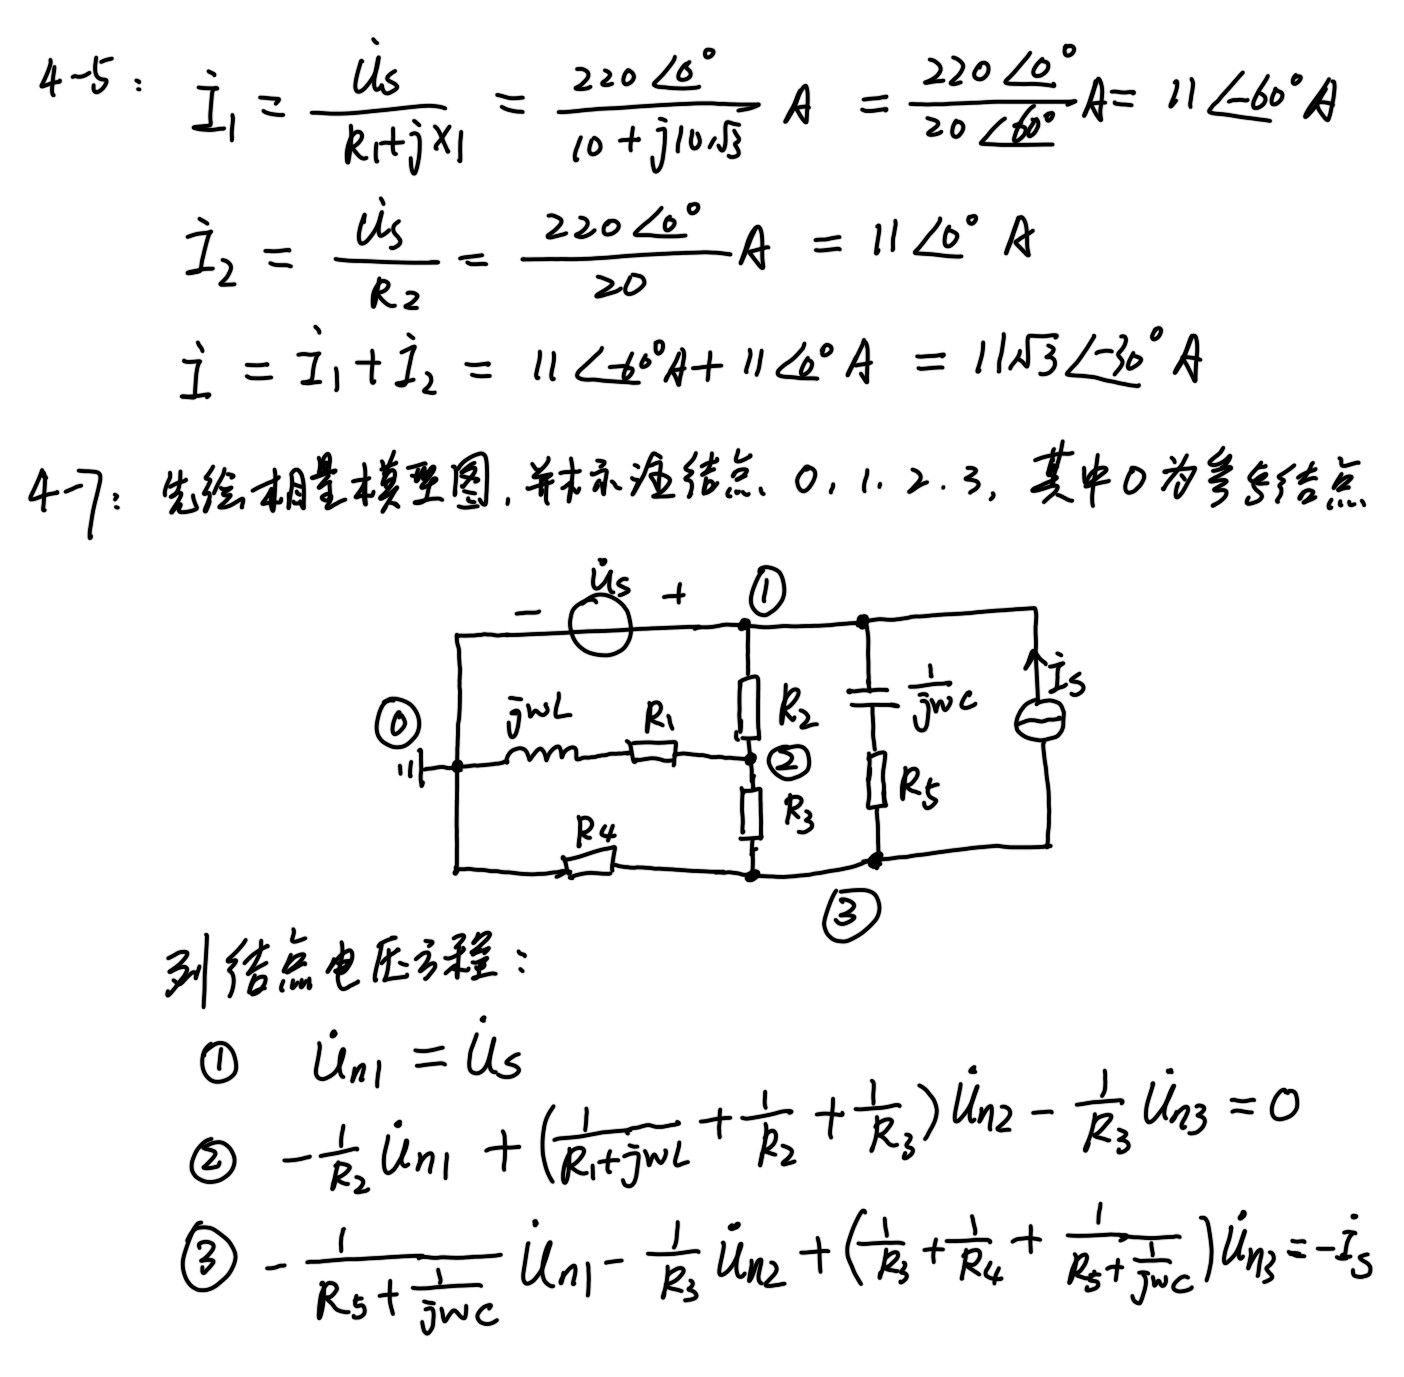 4-5: İ₁ = U̇s/(R₁+jX₁) = 220∠0°/(10+j10√3) A = 220∠0°/20∠60° A = 11∠-60° A
İ₂ = U̇s/R₂ = 220∠0°/20 A = 11∠0° A
İ = İ₁+İ₂ = 11∠-60°A + 11∠0°A = 11√3∠-30° A
4-7: 先绘相量模型图, 并标注结点 0, 1. 2. 3, 其中0为参考结点
- U̇s + ①
⓪ jwL R₁ R₂ 1/jwC İs
② R₃ R₅
R₄
③
列结点电压方程:
① U̇n1 = U̇s
② -1/R₂ U̇n1 + (1/(R₁+jwL) + 1/R₂ + 1/R₃) U̇n2 - 1/R₃ U̇n3 = 0
③ -1/(R₅+1/jwC) U̇n1 - 1/R₃ U̇n2 + (1/R₃ + 1/R₄ + 1/(R₅+1/jwC)) U̇n3 = -İs